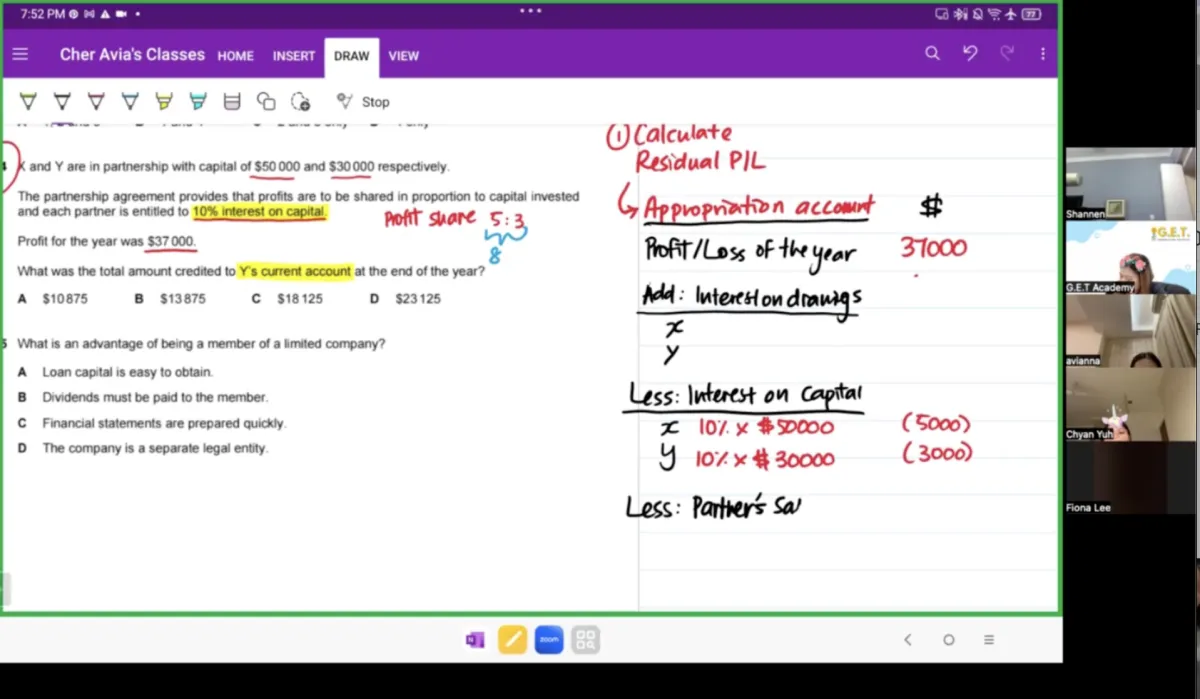 7:52 PM
77
Cher Avia's Classes HOME INSERT DRAW VIEW
Stop
X and Y are in partnership with capital of $50 000 and $30 000 respectively.
The partnership agreement provides that profits are to be shared in proportion to capital invested
and each partner is entitled to 10% interest on capital.
Profit share 5:3
8
Profit for the year was $37 000.
What was the total amount credited to Y's current account at the end of the year?
A $10 875 B $13 875 C $18 125 D $23 125
5 What is an advantage of being a member of a limited company?
A Loan capital is easy to obtain.
B Dividends must be paid to the member.
C Financial statements are prepared quickly.
D The company is a separate legal entity.
① Calculate
Residual P/L
Appropriation account $
Profit/Loss of the year 37000
Add: Interest on drawings
x
y
Less: Interest on Capital
x 10% x $50000 (5000)
y 10% x $30000 (3000)
Less: Partner's Sa
zoom
Shannen
G.E.T.
G.E.T Academy
avianna
Chyan Yuh
Fiona Lee